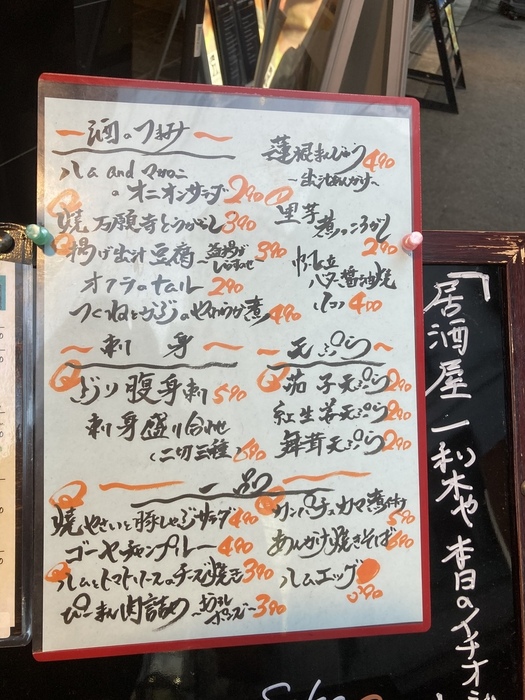 酒のつまみ
ハム and マカロニ
のオニオンサラダ 290
焼 万願寺とうがらし 390
揚げ出汁豆腐 釜揚げしらすのせ 390
オクラのナムル 290
つくねとかぶのやわらか煮 490
蓮根まんじゅう 490
〜出汁あんかけ〜
里芋煮っころがし
290
帆立
バター醤油焼
(1コ) 400
刺身
ぶり腹身刺 590
刺身盛り合わせ
(二切三種) 690
天ぷら
茄子天ぷら 290
紅生姜天ぷら 290
舞茸天ぷら 290
一品
焼やさいと豚しゃぶサラダ 490
ゴーヤチャンプルー 490
ハムとトマトソースのチーズ焼き 390
ぴーまん肉詰め 〜おろしポン酢〜 390
カンパチのカマ煮付け
590
あんかけ焼きそば 690
ハムエッグ
390
「居酒屋 一利木や 本日のイチオシ